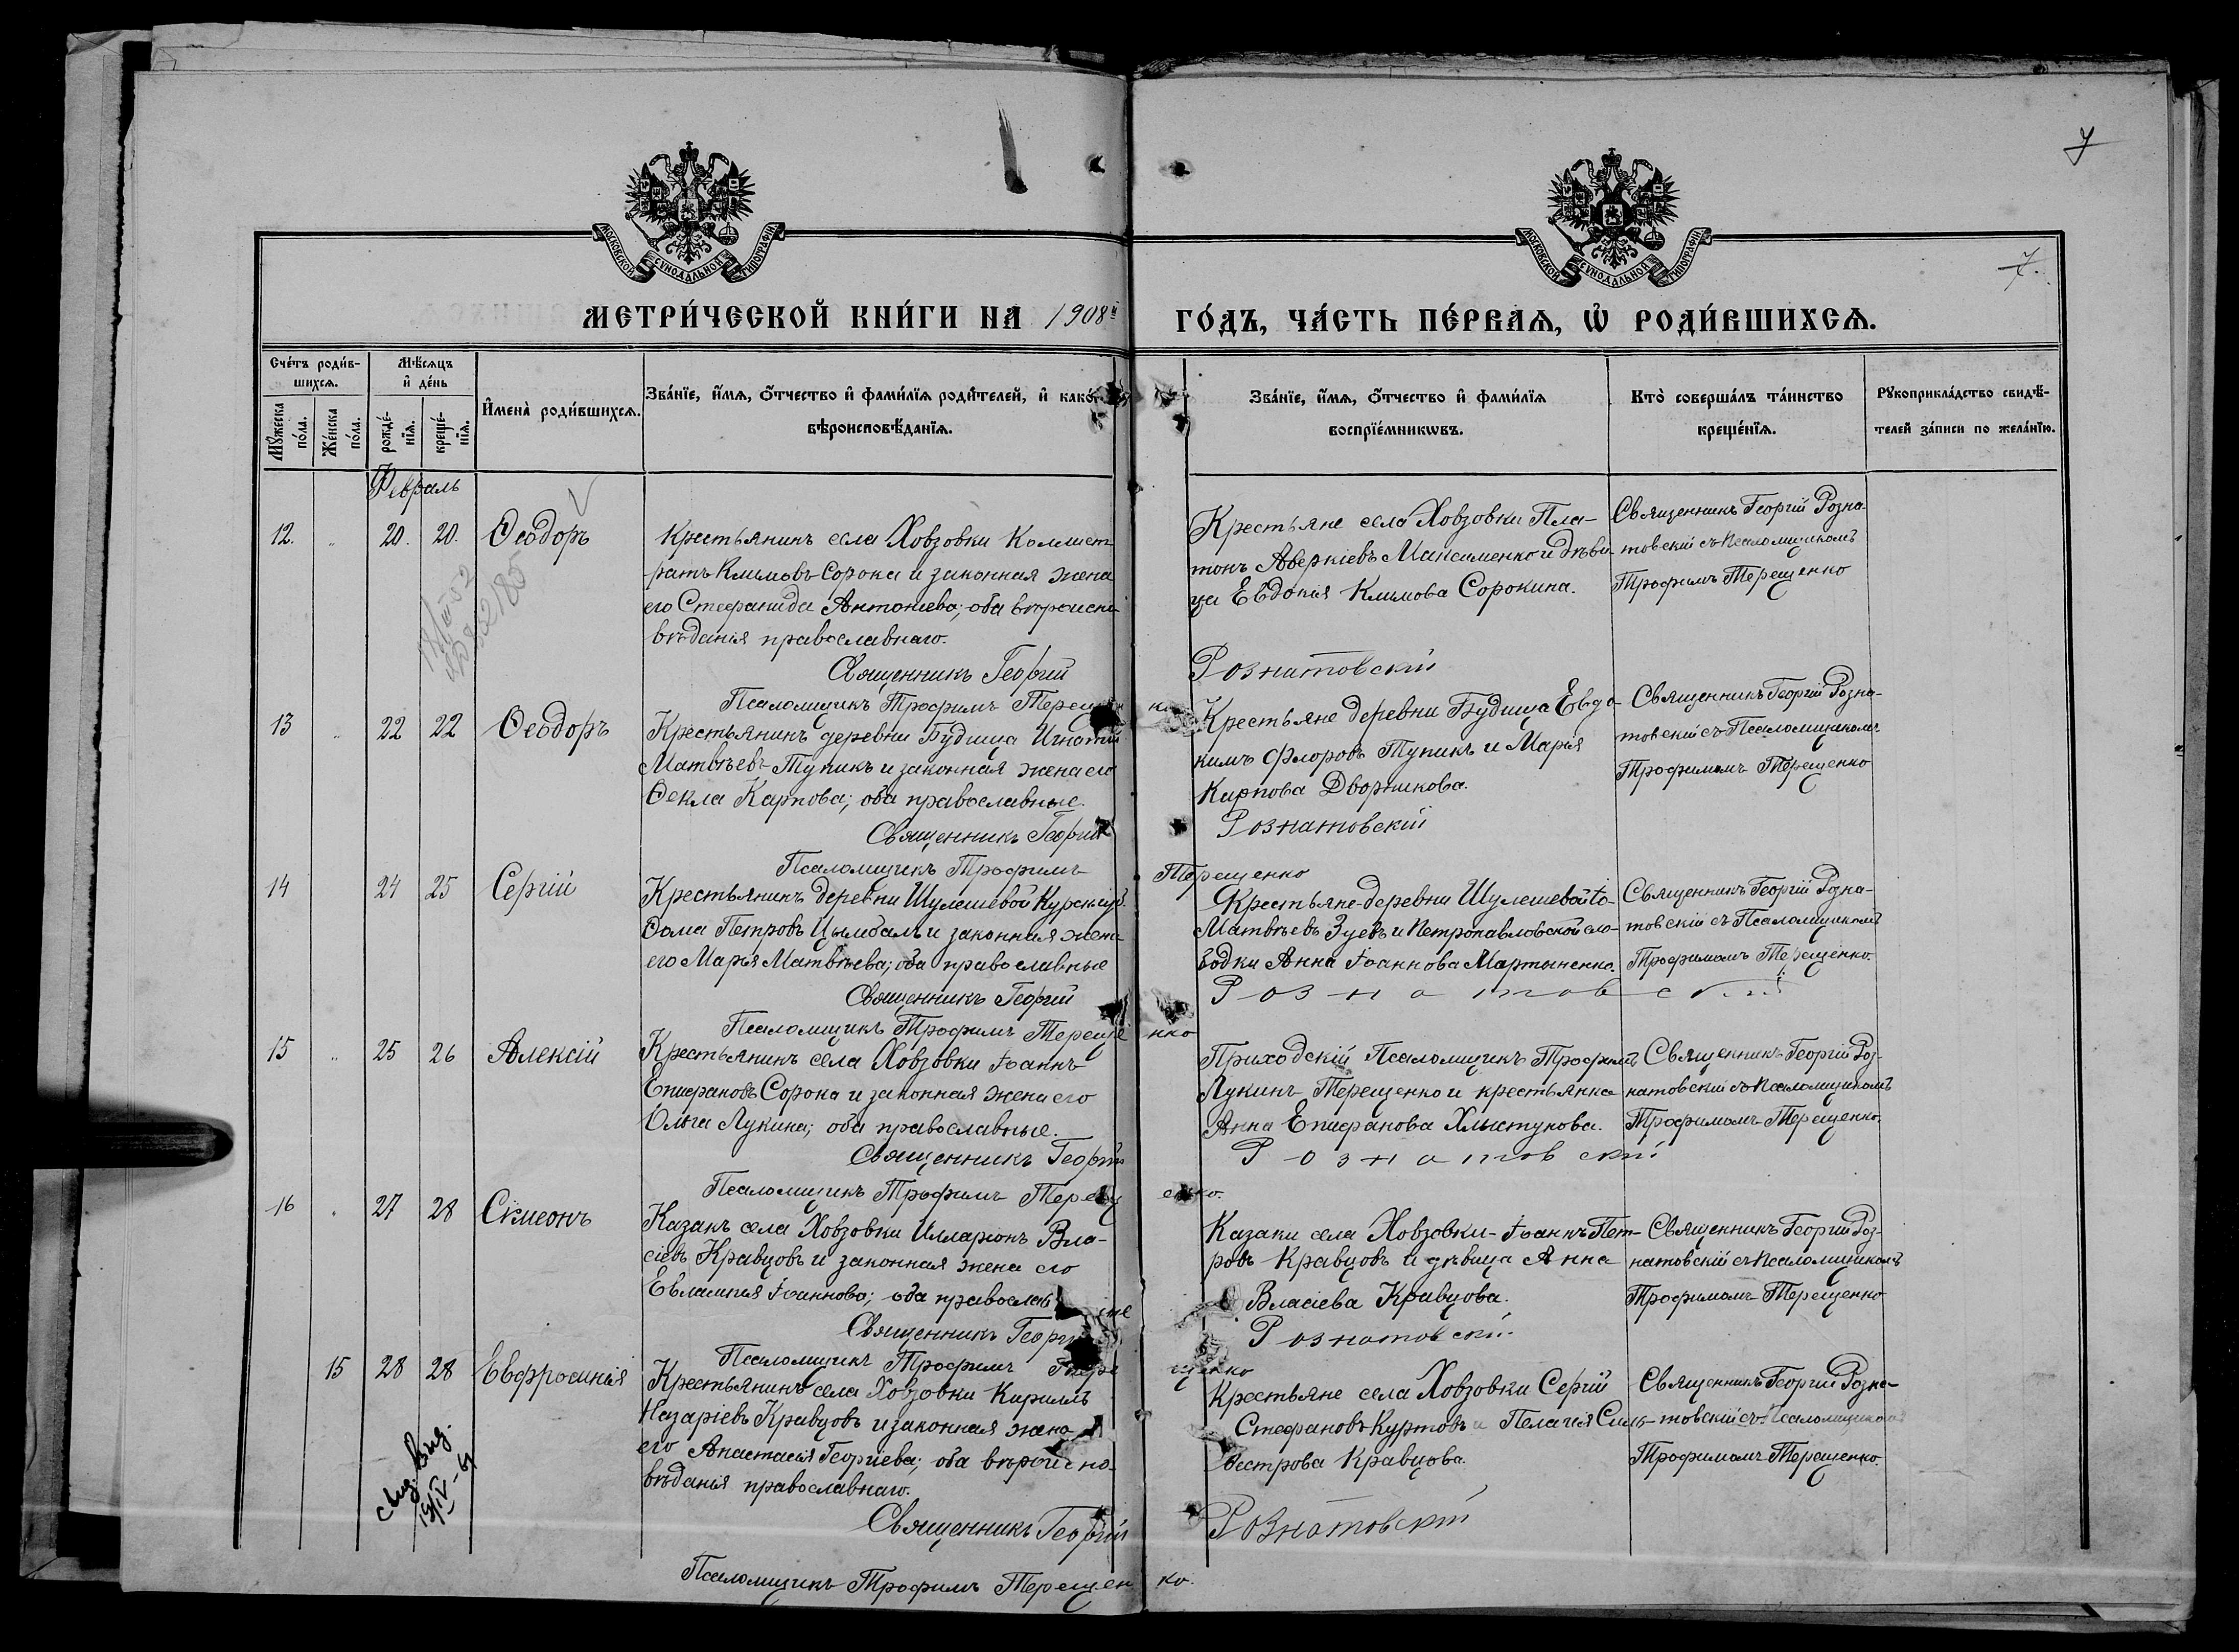 7
7.
МОСКОВСКОЙ СѴНОДАЛЬНОЙ ТИПОГРАФІИ
МОСКОВСКОЙ СѴНОДАЛЬНОЙ ТИПОГРАФІИ
МЕТРИ́ЧЕСКОЙ КНИ́ГИ НА 1908й ГО́ДЪ, ЧА́СТЬ ПЕ́РВАѦ, Ѡ РОДИ́ВШИХСѦ.
Сче́тъ роди́в-
шихсѧ.
Мꙋжеска по́ла.
Же́нска по́ла.
Мѣ́сѧцъ
и҆ де́нь
рожде́-
нїѧ.
креще́-
нїѧ.
И҆мена̀ роди́вшихсѧ.
Зва́нїе, и҆́мѧ, ѻ҆́тчество и҆ фами́лїѧ роди́телей, и҆ како́гѡ
вѣроисповѣ́данїѧ.
Зва́нїе, и҆́мѧ, ѻ҆́тчество и҆ фами́лїѧ
воспрїе́мникѡвъ.
Кто̀ соверша́лъ та́инство
креще́нїѧ.
Рꙋкоприкла́дство свидѣ́-
телей за́писи по жела́нїю.
Февраль
12. " 20. 20. Ѳеодоръ
Крестьянинъ села Ховзовки Каллист-
ратъ Климовъ Сорока и законная жена
его Стефанида Антонiева; оба вѣроиспо-
вѣданія православнаго.
Священникъ Георгій Рознатовскій
Псаломщикъ Трофимъ Терещенко
Крестьяне села Ховзовки Пла-
тонъ Аверкіевъ Максименко и дѣви-
ца Евдокія Климова Сорокина.
Священникъ Георгій Розна-
товскій съ Псаломщикомъ
Трофимъ Терещенко
13 " 22 22 Ѳеодоръ
Крестьянинъ деревни Будища Игнатій
Матвѣевъ Тупикъ и законная жена его
Ѳекла Карпова; оба православные.
Священникъ Георгій Рознатовскій
Псаломщикъ Трофимъ Терещенко
Крестьяне деревни Будища Евдо-
кимъ Флоровъ Тупикъ и Марья
Карпова Дворникова.
Священникъ Георгій Розна-
товскій съ Псаломщикомъ
Трофимомъ Терещенко
14 24 25 Сергій
Крестьянинъ деревни Шулешевой Курск. губ.
Ѳома Петровъ Цымбалъ и законная жена
его Марья Матвѣева; оба православные
Священникъ Георгій Рознатовскій
Псаломщикъ Трофимъ Терещенко
Крестьяне деревни Шулешевой Іо-
Матвѣевъ Зуевъ и Петропавловской сло-
бодки Анна Іоаннова Мартыненко.
Священникъ Георгій Розна-
товскій съ Псаломщикомъ
Трофимомъ Терещенко.
15 " 25 26 Алексій
Крестьянинъ села Ховзовки Іоаннъ
Епифановъ Сорока и законная жена его
Ольга Лукина; оба православные.
Священникъ Георгій Рознатовскій
Псаломщикъ Трофимъ Терещенко.
Приходскій Псаломщикъ Трофимъ
Лукинъ Терещенко и крестьянка
Анна Епифанова Хлыстунова.
Священникъ Георгій Роз-
натовскій съ Псаломщикомъ
Трофимомъ Терещенко.
16 " 27 28 Сѵмеонъ
Казакъ села Ховзовки Илларіонъ Вла-
сіевъ Кравцовъ и законная жена его
Евлампія Іоаннова; оба православные
Священникъ Георгій Рознатовскій
Псаломщикъ Трофимъ Терещенко
Казаки села Ховзовки-Іоаннъ Пет-
ровъ Кравцовъ и дѣвица Анна
Власіева Кравцова.
Священникъ Георгій Роз-
натовскій съ Псаломщикомъ
Трофимомъ Терещенко
15 28 28 Евфросинія
Крестьянинъ села Ховзовки Кириллъ
Назаріевъ Кравцовъ и законная жена
его Анастасія Георгіева; оба вѣроиспо-
вѣданія православнаго.
Священникъ Георгій Рознатовскій
Псаломщикъ Трофимъ Терещенко.
Крестьяне села Ховзовки Сергій
Стефановъ Куртовъ и Пелагія Силь-
вестрова Кравцова.
Священникъ Георгій Розна-
товскій съ Псаломщикомъ
Трофимомъ Терещенко.